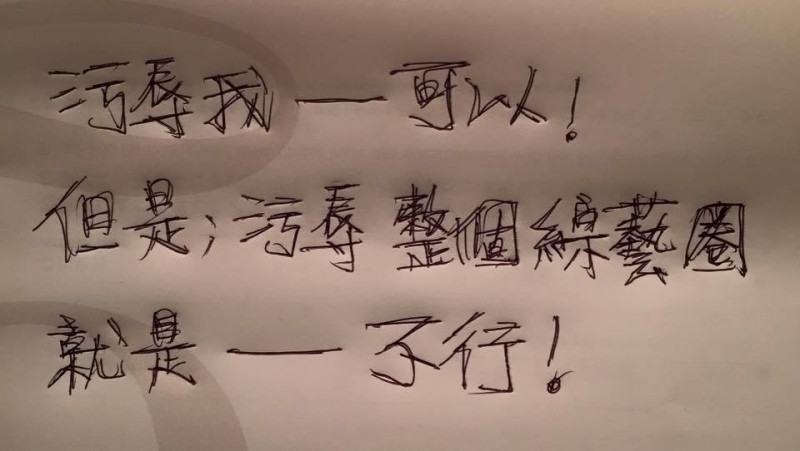 污辱我一可以!
但是;污辱整個綜藝圈
就是一不行!